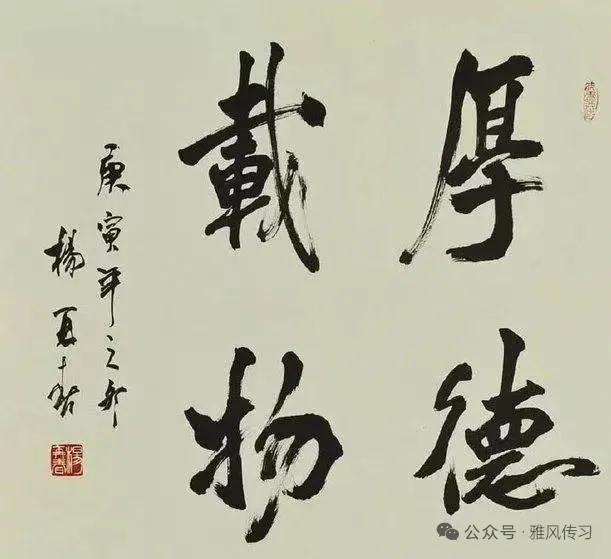 厚德
載物
庚寅年之
楊再春
公众号 · 雅风传习